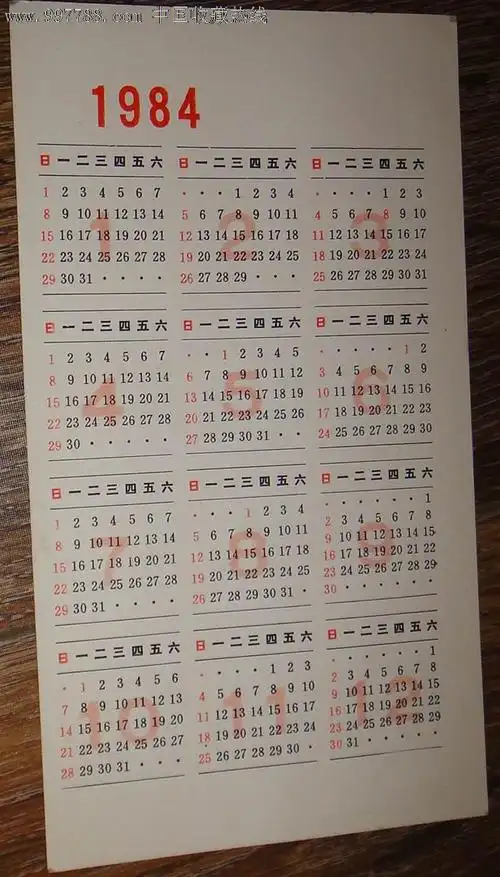 www.997788.com 中国收藏热线
1984
日 一 二 三 四 五 六
1 2 3 4 5 6 7
8 9 10 11 12 13 14
15 16 17 18 19 20 21
22 23 24 25 26 27 28
29 30 31 · · · ·
1
日 一 二 三 四 五 六
· · · 1 2 3 4
5 6 7 8 9 10 11
12 13 14 15 16 17 18
19 20 21 22 23 24 25
26 27 28 29 · · ·
2
日 一 二 三 四 五 六
· · · · 1 2 3
4 5 6 7 8 9 10
11 12 13 14 15 16 17
18 19 20 21 22 23 24
25 26 27 28 29 30 31
3
日 一 二 三 四 五 六
1 2 3 4 5 6 7
8 9 10 11 12 13 14
15 16 17 18 19 20 21
22 23 24 25 26 27 28
29 30 · · · · ·
4
日 一 二 三 四 五 六
· · 1 2 3 4 5
6 7 8 9 10 11 12
13 14 15 16 17 18 19
20 21 22 23 24 25 26
27 28 29 30 31 · ·
5
日 一 二 三 四 五 六
· · · · · 1 2
3 4 5 6 7 8 9
10 11 12 13 14 15 16
17 18 19 20 21 22 23
24 25 26 27 28 29 30
6
日 一 二 三 四 五 六
1 2 3 4 5 6 7
8 9 10 11 12 13 14
15 16 17 18 19 20 21
22 23 24 25 26 27 28
29 30 31 · · · ·
7
日 一 二 三 四 五 六
· · · 1 2 3 4
5 6 7 8 9 10 11
12 13 14 15 16 17 18
19 20 21 22 23 24 25
26 27 28 29 30 31 ·
8
日 一 二 三 四 五 六
· · · · · · 1
2 3 4 5 6 7 8
9 10 11 12 13 14 15
16 17 18 19 20 21 22
23 24 25 26 27 28 29
30 · · · · · ·
9
日 一 二 三 四 五 六
· 1 2 3 4 5 6
7 8 9 10 11 12 13
14 15 16 17 18 19 20
21 22 23 24 25 26 27
28 29 30 31 · · ·
10
日 一 二 三 四 五 六
· · · · 1 2 3
4 5 6 7 8 9 10
11 12 13 14 15 16 17
18 19 20 21 22 23 24
25 26 27 28 29 30 ·
11
日 一 二 三 四 五 六
· · · · · · 1
2 3 4 5 6 7 8
9 10 11 12 13 14 15
16 17 18 19 20 21 22
23 24 25 26 27 28 29
30 31 · · · · ·
12